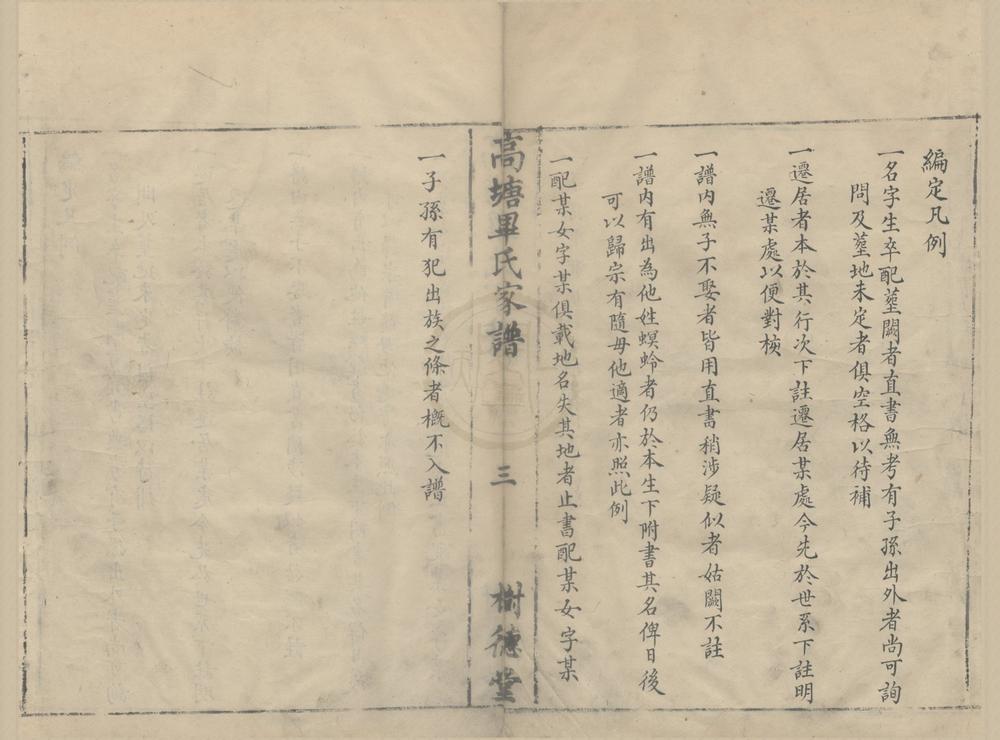 編定凡例
一名字生卒配塟闕者直書無考有子孫出外者尚可詢
問及塟地未定者俱空格以待補
一遷居者本於其行次下註遷居某處今先於世系下註明
遷某處以便對核
一譜內無子不娶者皆用直書稍涉疑似者姑闕不註
一譜内有出為他姓螟蛉者仍於本生下附書其名俾日後
可以歸宗有隨母他適者亦照此例
一配某女字某俱載地名失其地者止書配某女字某
高塘畢氏家譜 三 樹德堂
一子孫有犯出族之條者概不入譜